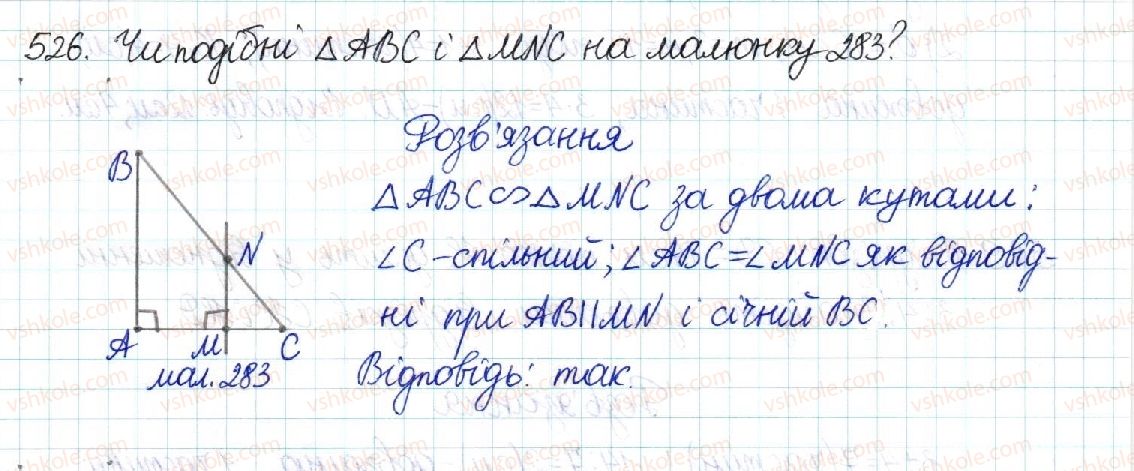 526. Чи подібні △ABC і △MNC на малюнку 283?
Розв'язання
△ABC∽△MNC за двома кутами:
∠C-спільний; ∠ABC=∠MNC як відповід-
ні при AB||MN і січній BC.
Відповідь: так.
B
N
A
M
C
мал. 283